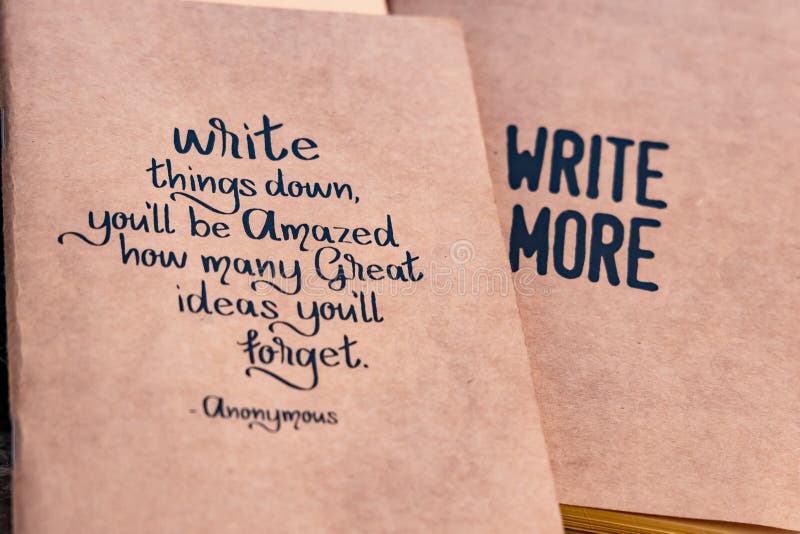 write
things down,
you'll be Amazed
how many Great
ideas you'll
forget.
- Anonymous
WRITE
MORE
dreamstime